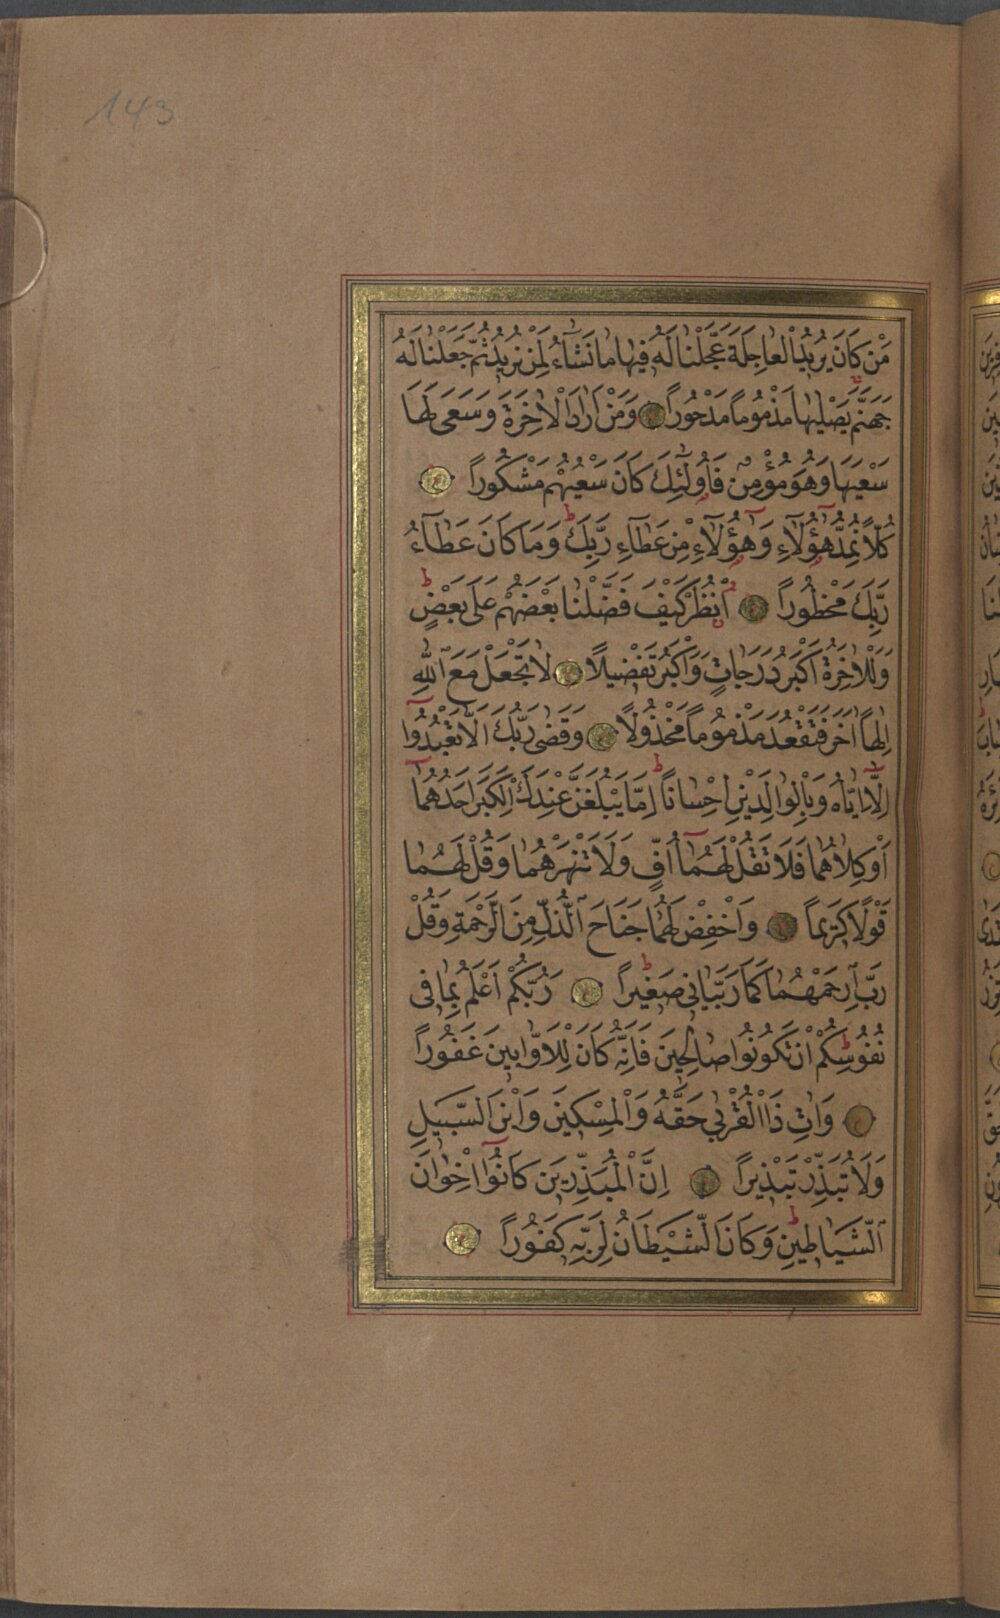 143
مَنْ كَانَ يُرِيدُ الْعَاجِلَةَ عَجَّلْنَا لَهُ فِيهَا مَا نَشَآءُ لِمَنْ نُرِيدُ ثُمَّ جَعَلْنَا لَهُ
جَهَنَّمَ يَصْلٰيهَا مَذْمُومًا مَدْحُورًا وَمَنْ اَرَادَ الْاٰخِرَةَ وَسَعٰى لَهَا
سَعْيَهَا وَهُوَ مُؤْمِنٌ فَاُولٰٓئِكَ كَانَ سَعْيُهُمْ مَشْكُورًا
كُلًّا نُمِدُّ هٰٓؤُلَآءِ وَهٰٓؤُلَآءِ مِنْ عَطَآءِ رَبِّكَ وَمَا كَانَ عَطَآءُ
رَبِّكَ مَحْظُورًا اُنْظُرْ كَيْفَ فَضَّلْنَا بَعْضَهُمْ عَلٰى بَعْضٍ
وَلَلْاٰخِرَةُ اَكْبَرُ دَرَجَاتٍ وَاَكْبَرُ تَفْضِيلًا لَا تَجْعَلْ مَعَ اللّٰهِ
اِلٰهًا اٰخَرَ فَتَقْعُدَ مَذْمُومًا مَخْذُولًا وَقَضٰى رَبُّكَ اَلَّا تَعْبُدُٓوا
اِلَّٓا اِيَّاهُ وَبِالْوَالِدَيْنِ اِحْسَانًا اِمَّا يَبْلُغَنَّ عِنْدَكَ الْكِبَرَ اَحَدُهُمَٓا
اَوْ كِلَاهُمَا فَلَا تَقُلْ لَهُمَٓا اُفٍّ وَلَا تَنْهَرْهُمَا وَقُلْ لَهُمَا
قَوْلًا كَرِيمًا وَاخْفِضْ لَهُمَا جَنَاحَ الذُّلِّ مِنَ الرَّحْمَةِ وَقُلْ
رَبِّ ارْحَمْهُمَا كَمَا رَبَّيَانِى صَغِيرًا رَبُّكُمْ اَعْلَمُ بِمَا فِى
نُفُوسِكُمْ اِنْ تَكُونُوا صَالِحِينَ فَاِنَّهُ كَانَ لِلْاَوَّابِينَ غَفُورًا
وَاٰتِ ذَا الْقُرْبٰى حَقَّهُ وَالْمِسْكِينَ وَابْنَ السَّبِيلِ
وَلَا تُبَذِّرْ تَبْذِيرًا اِنَّ الْمُبَذِّرِينَ كَانُٓوا اِخْوَانَ
الشَّيَاطِينِ وَكَانَ الشَّيْطَانُ لِرَبِّهِ كَفُورًا